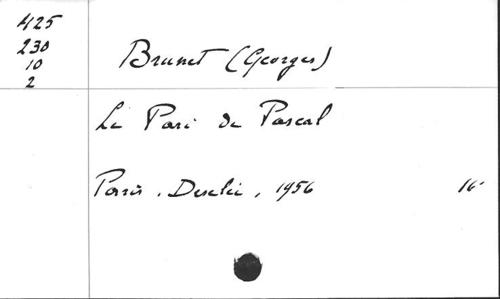 425
230
10
2
Brunet (Georges)
Le Pari de Pascal
Paris. Desclée, 1956 16°